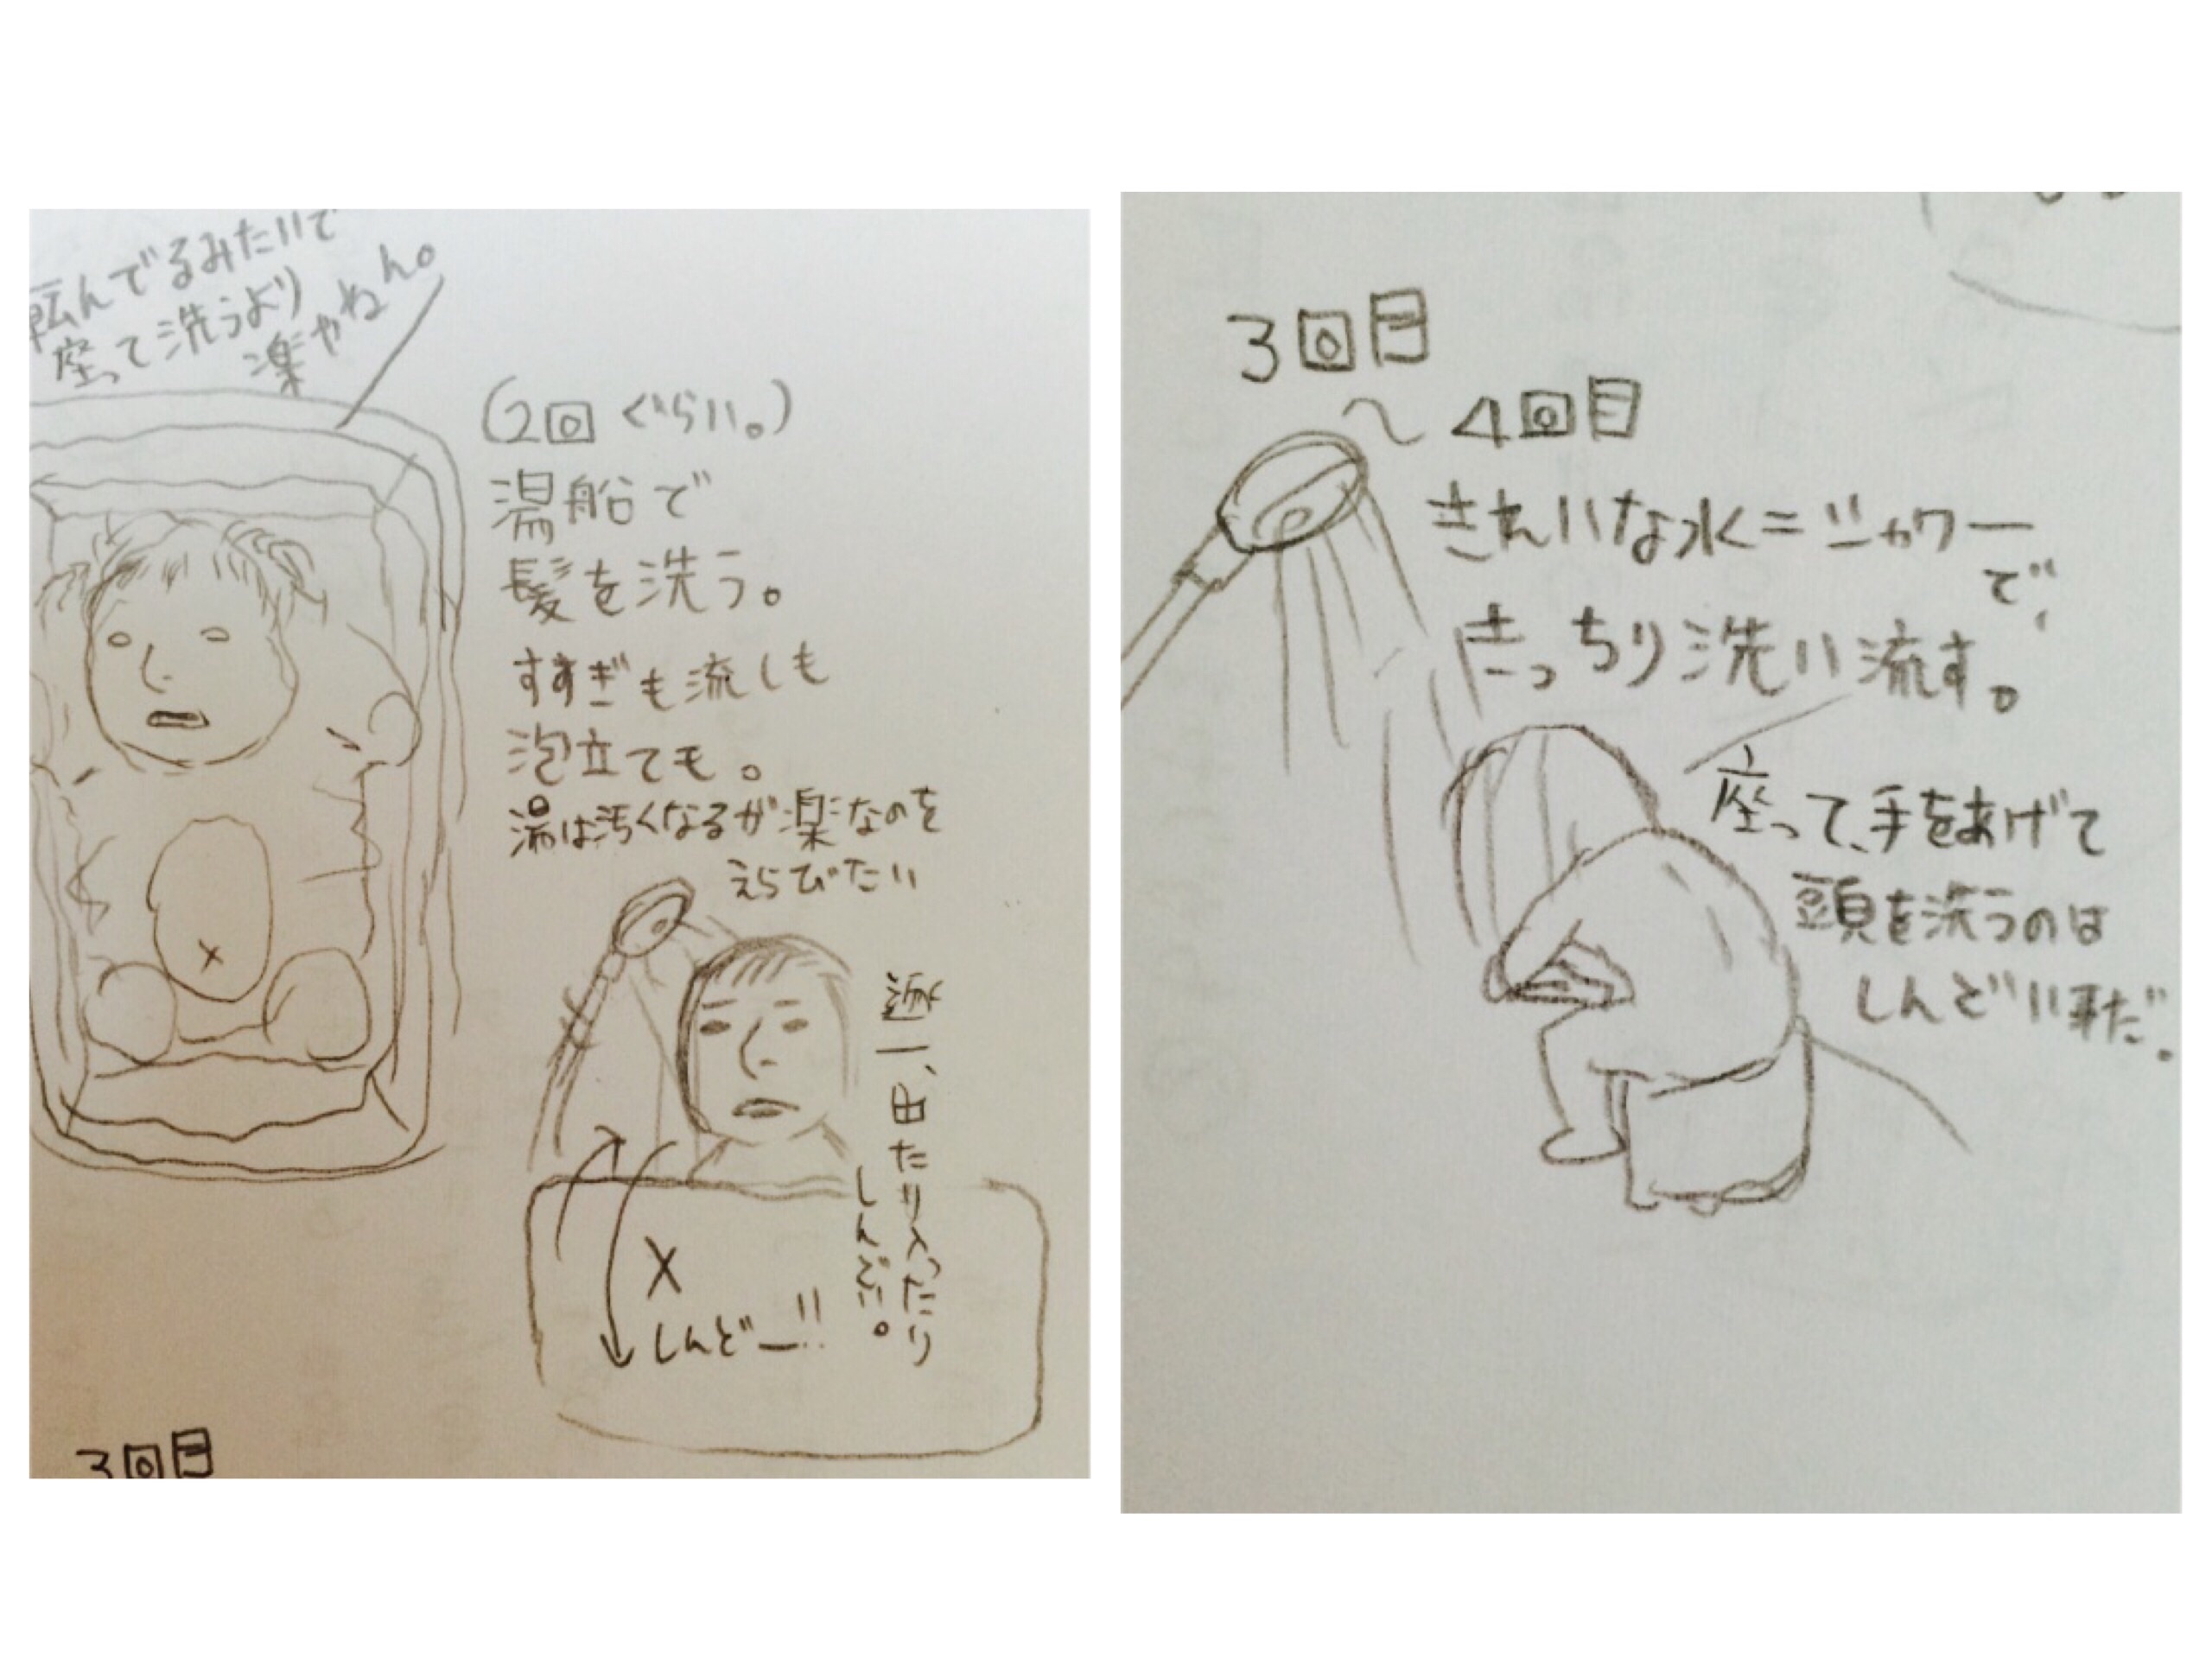 転んでるみたいで
座って洗うより
楽やねん。
(2回ぐらい。)
湯船で
髪を洗う。
すすぎも流しも
泡立ても。
湯は汚くなるが楽なのを
えらびたい
逐一、出たり入ったり
しんどい。
×
しんどー!!
3回目
3回目
〜4回目
きれいな水=シャワー
で、
きっちり洗い流す。
座って、手をあげて
頭を洗うのは
しんどい事だ。